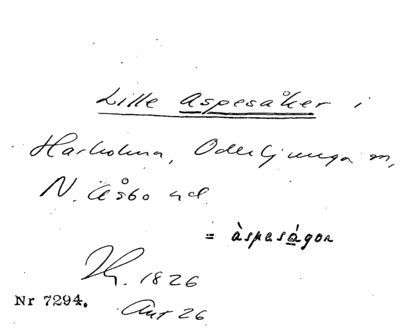 Lille Aspesåker i
Harholma, Oderljunga sn,
N. Åsbo hd.
= àspeságor
1826
Nr 7294. Ant 26